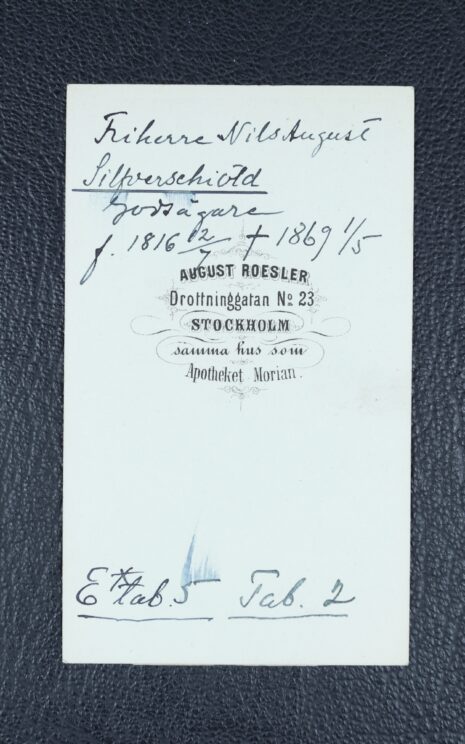 Friherre Nils August
Silfverschiöld
Godsägare
f. 1816 12/7 † 1869 1/5
AUGUST ROESLER
Drottninggatan No 23
STOCKHOLM
samma hus som
Apotheket Morian.
E* tab. 5 Tab. 2